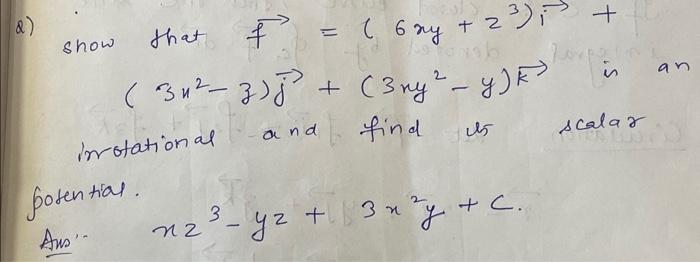 a) show that f⃗ = (6xy + z³)i⃗ +
(3x² - z)j⃗ + (3xy² - y)k⃗ is an
irrotational and find its scalar
potential.
Ans:- xz³ - yz + 3x²y + C.